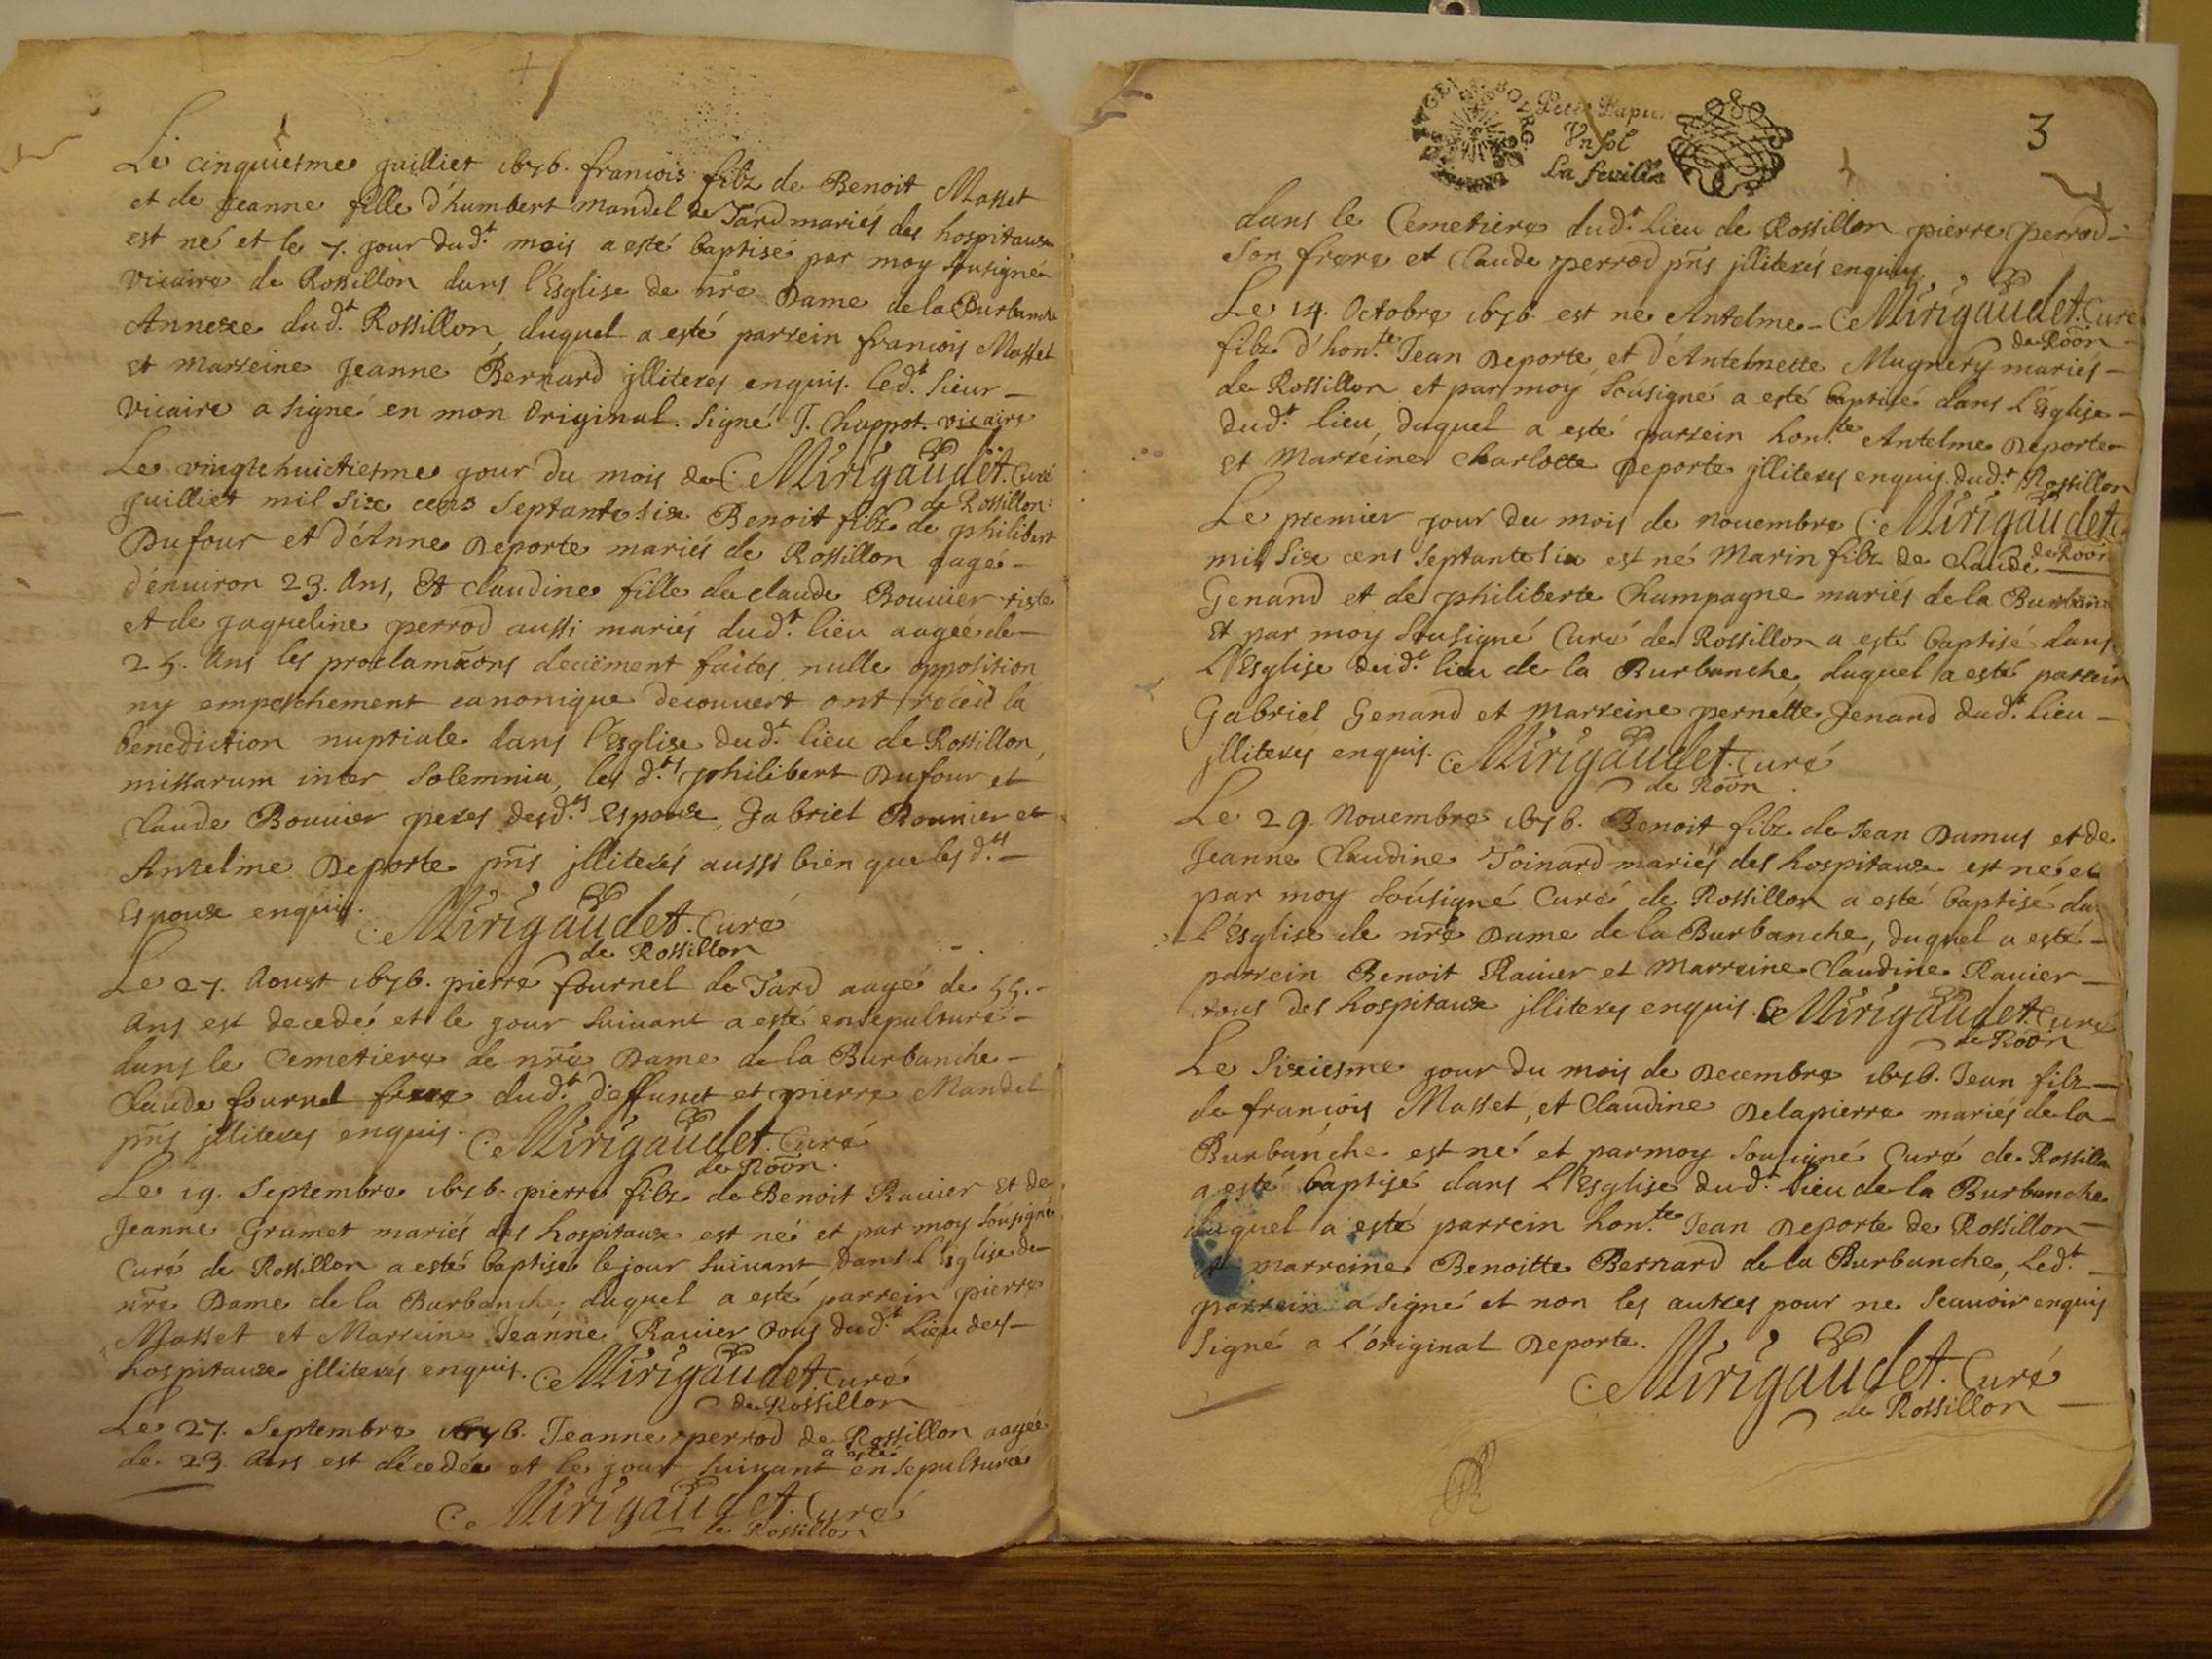 Le cinquiesme juilliet 1676. francois filz de Benoit Masset
et de Jeanne fille d'humbert Mandel de Tard mariés des hospitaux
est né et le 7. jour dud.t mois a esté baptisé par moy sousigné
vicaire de Rossillon dans l'Esglise de nr̃e Dame de la Burbanche
Annexe dud.t Rossillon, duquel a esté parrein francois Masset
et marreine Jeanne Bernard jlliterés enquis. led.t sieur
vicaire a signé en mon Original. Signé J. Chappot. vicaire
Le vingthuictiesme jour du mois de Mirigaudet. Curé
de Rossillon
juilliet mil six cens septante six Benoit filz de philibert
Dufour et d'Anne Deporte mariés de Rossillon aagé
d'enuiron 23. Ans, Et claudine fille de claude Bouuier
et de jaqueline perrod aussi mariés dud.t lieu aagée de
25. Ans les proclamãons deuëment faites nulle opposition
ny empeschement canonique decouuert ont receu la
benediction nuptiale dans l'Esglise dud.t lieu de Rossillon,
missarum inter solemnia, les d.ts philibert Dufour et
claude Bouuier peres desd.ts Espoux, Gabriel Bouuier et
Antelme Deporte pñs jlliterés aussi bien que les d.ts
Espoux enquis. Mirigaudet. Curé
de Rossillon
Le 27. Aoust 1676. pierre fournel de Tard aagé de 55.
Ans est decedé et le jour suiuant a esté ensepulturé
dans le Cemetiere de nr̃e Dame de la Burbanche
Claude fournel frere dud.t deffunct et pierre Mandel
pñs jlliterés enquis. Mirigaudet. Curé
de Rõon.
Le 19. Septembre 1676. pierre filz de Benoit Rauier et de
Jeanne Grumet mariés des hospitaux est né et par moy sousigné
Curé de Rossillon a esté baptisé le jour suiuant dans l'Esglise de
nr̃e Dame de la Burbanche, duquel a esté parrein pierre
Masset et Marreine Jeanne Rauier tous dud.t Lieu des
hospitaux jlliterés enquis. Mirigaudet. Curé
de Rossillon
Le 27. Septembre 1676. Jeanne perrod de Rossillon aagée
a esté
de 23. Ans est décedée et le jour suiuant ensepulturée
Mirigaudet. Curé
de Rossillon
Petit Papier
Vn sol
La feuille
3
dans le Cemetiere dud.t Lieu de Rossillon pierre perrod
son frere et Claude perrod pñs jlliterés enquis.
Le 14. Octobre 1676. est né Antelme Mirigaudet. Curé
de Rõon
filz d'hon.te Jean Deporte et d'Antelmette Mugnery mariés
de Rossillon et par moy sousigné a esté baptisé dans l'Esglise
dud.t lieu, duquel a esté parrein hon.te Antelme Deporte
et Marreine Charlotte Deporte jlliterés enquis dud.t Rossillon
Le premier jour du mois de nouembre Mirigaudet.
de Rõon
mil six cens septante six est né Marin filz de Claude
Genand et de philiberte Champagne mariés de la Burbanche
Et par moy sousigné Curé de Rossillon a esté baptisé dans
l'Esglise dud.t lieu de la Burbanche, duquel a esté parrein
Gabriel Genand et marreine pernette Genand dud.t Lieu
jlliterés enquis. Mirigaudet. Curé
de Rõon.
Le 29. Nouembre 1676. Benoit filz de Jean Damus et de
Jeanne Claudine Toinard mariés des hospitaux est né et
par moy soúsigné Curé de Rossillon a esté baptisé dans
l'Esglise de nr̃e Dame de la Burbanche, duquel a esté
parrein Benoit Rauier et marreine Claudine Rauier
tous des hospitaux jlliterés enquis. Mirigaudet. Curé
de Rõon
Le Sixiesme jour du mois de Decembre 1676. Jean filz
de francois Masset, et Claudine Delapierre mariés de la
Burbanche est né et par moy sousigné Curé de Rossillon
a esté baptisé dans l'Esglise dud.t lieu de la Burbanche
duquel a esté parrein hon.te Jean Deporte de Rossillon
et marreine Benoitte Bernard de la Burbanche, Led.t
parrein a signé et non les autres pour ne scauoir enquis
Signé a l'original Deporte.
Mirigaudet. Curé
de Rossillon